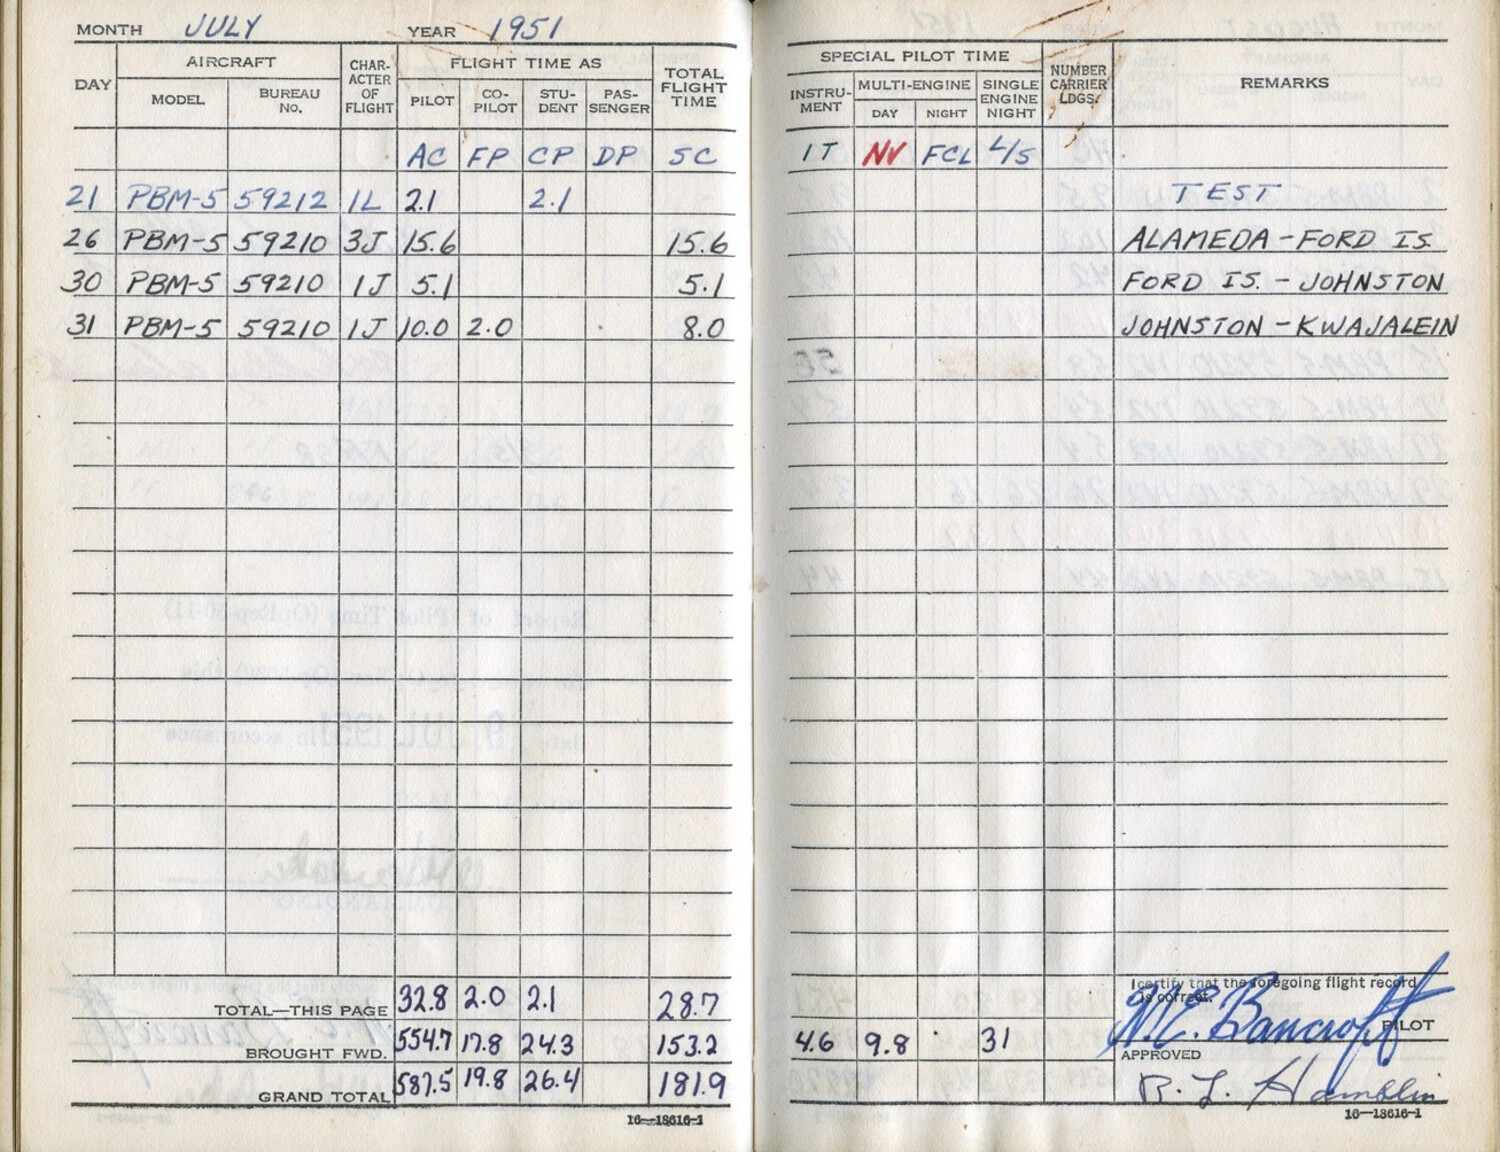 MONTH JULY YEAR 1951
DAY AIRCRAFT CHAR-ACTER OF FLIGHT FLIGHT TIME AS TOTAL FLIGHT TIME
MODEL BUREAU No. PILOT CO-PILOT STU-DENT PAS-SENGER
AC FP CP DP SC
21 PBM-5 59212 1L 2.1 2.1
26 PBM-5 59210 3J 15.6 15.6
30 PBM-5 59210 1J 5.1 5.1
31 PBM-5 59210 1J 10.0 2.0 8.0
TOTAL—THIS PAGE 32.8 2.0 2.1 28.7
BROUGHT FWD. 554.7 17.8 24.3 153.2
GRAND TOTAL 587.5 19.8 26.4 181.9
16—18616-1
SPECIAL PILOT TIME NUMBER CARRIER LDGS. REMARKS
INSTRU-MENT MULTI-ENGINE SINGLE ENGINE NIGHT
DAY NIGHT
IT NV FCL L/S
TEST
ALAMEDA - FORD IS.
FORD IS. - JOHNSTON
JOHNSTON - KWAJALEIN
I certify that the foregoing flight record is correct.
N.E. Bancroft PILOT
4.6 9.8 31
APPROVED
R. L. Hamblin
16—18616-1